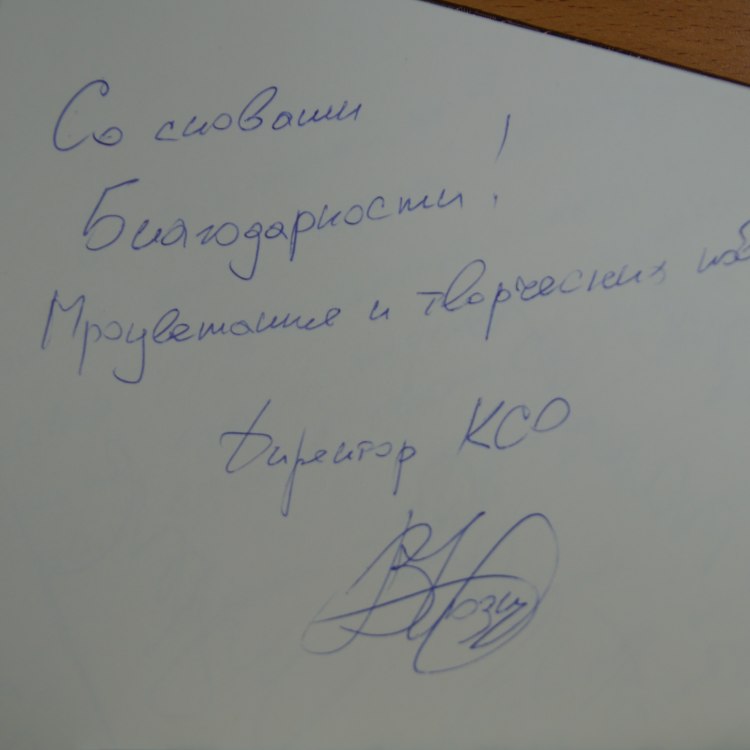 Со словами
Благодарности!
Процветания и творческих
Директор КСО